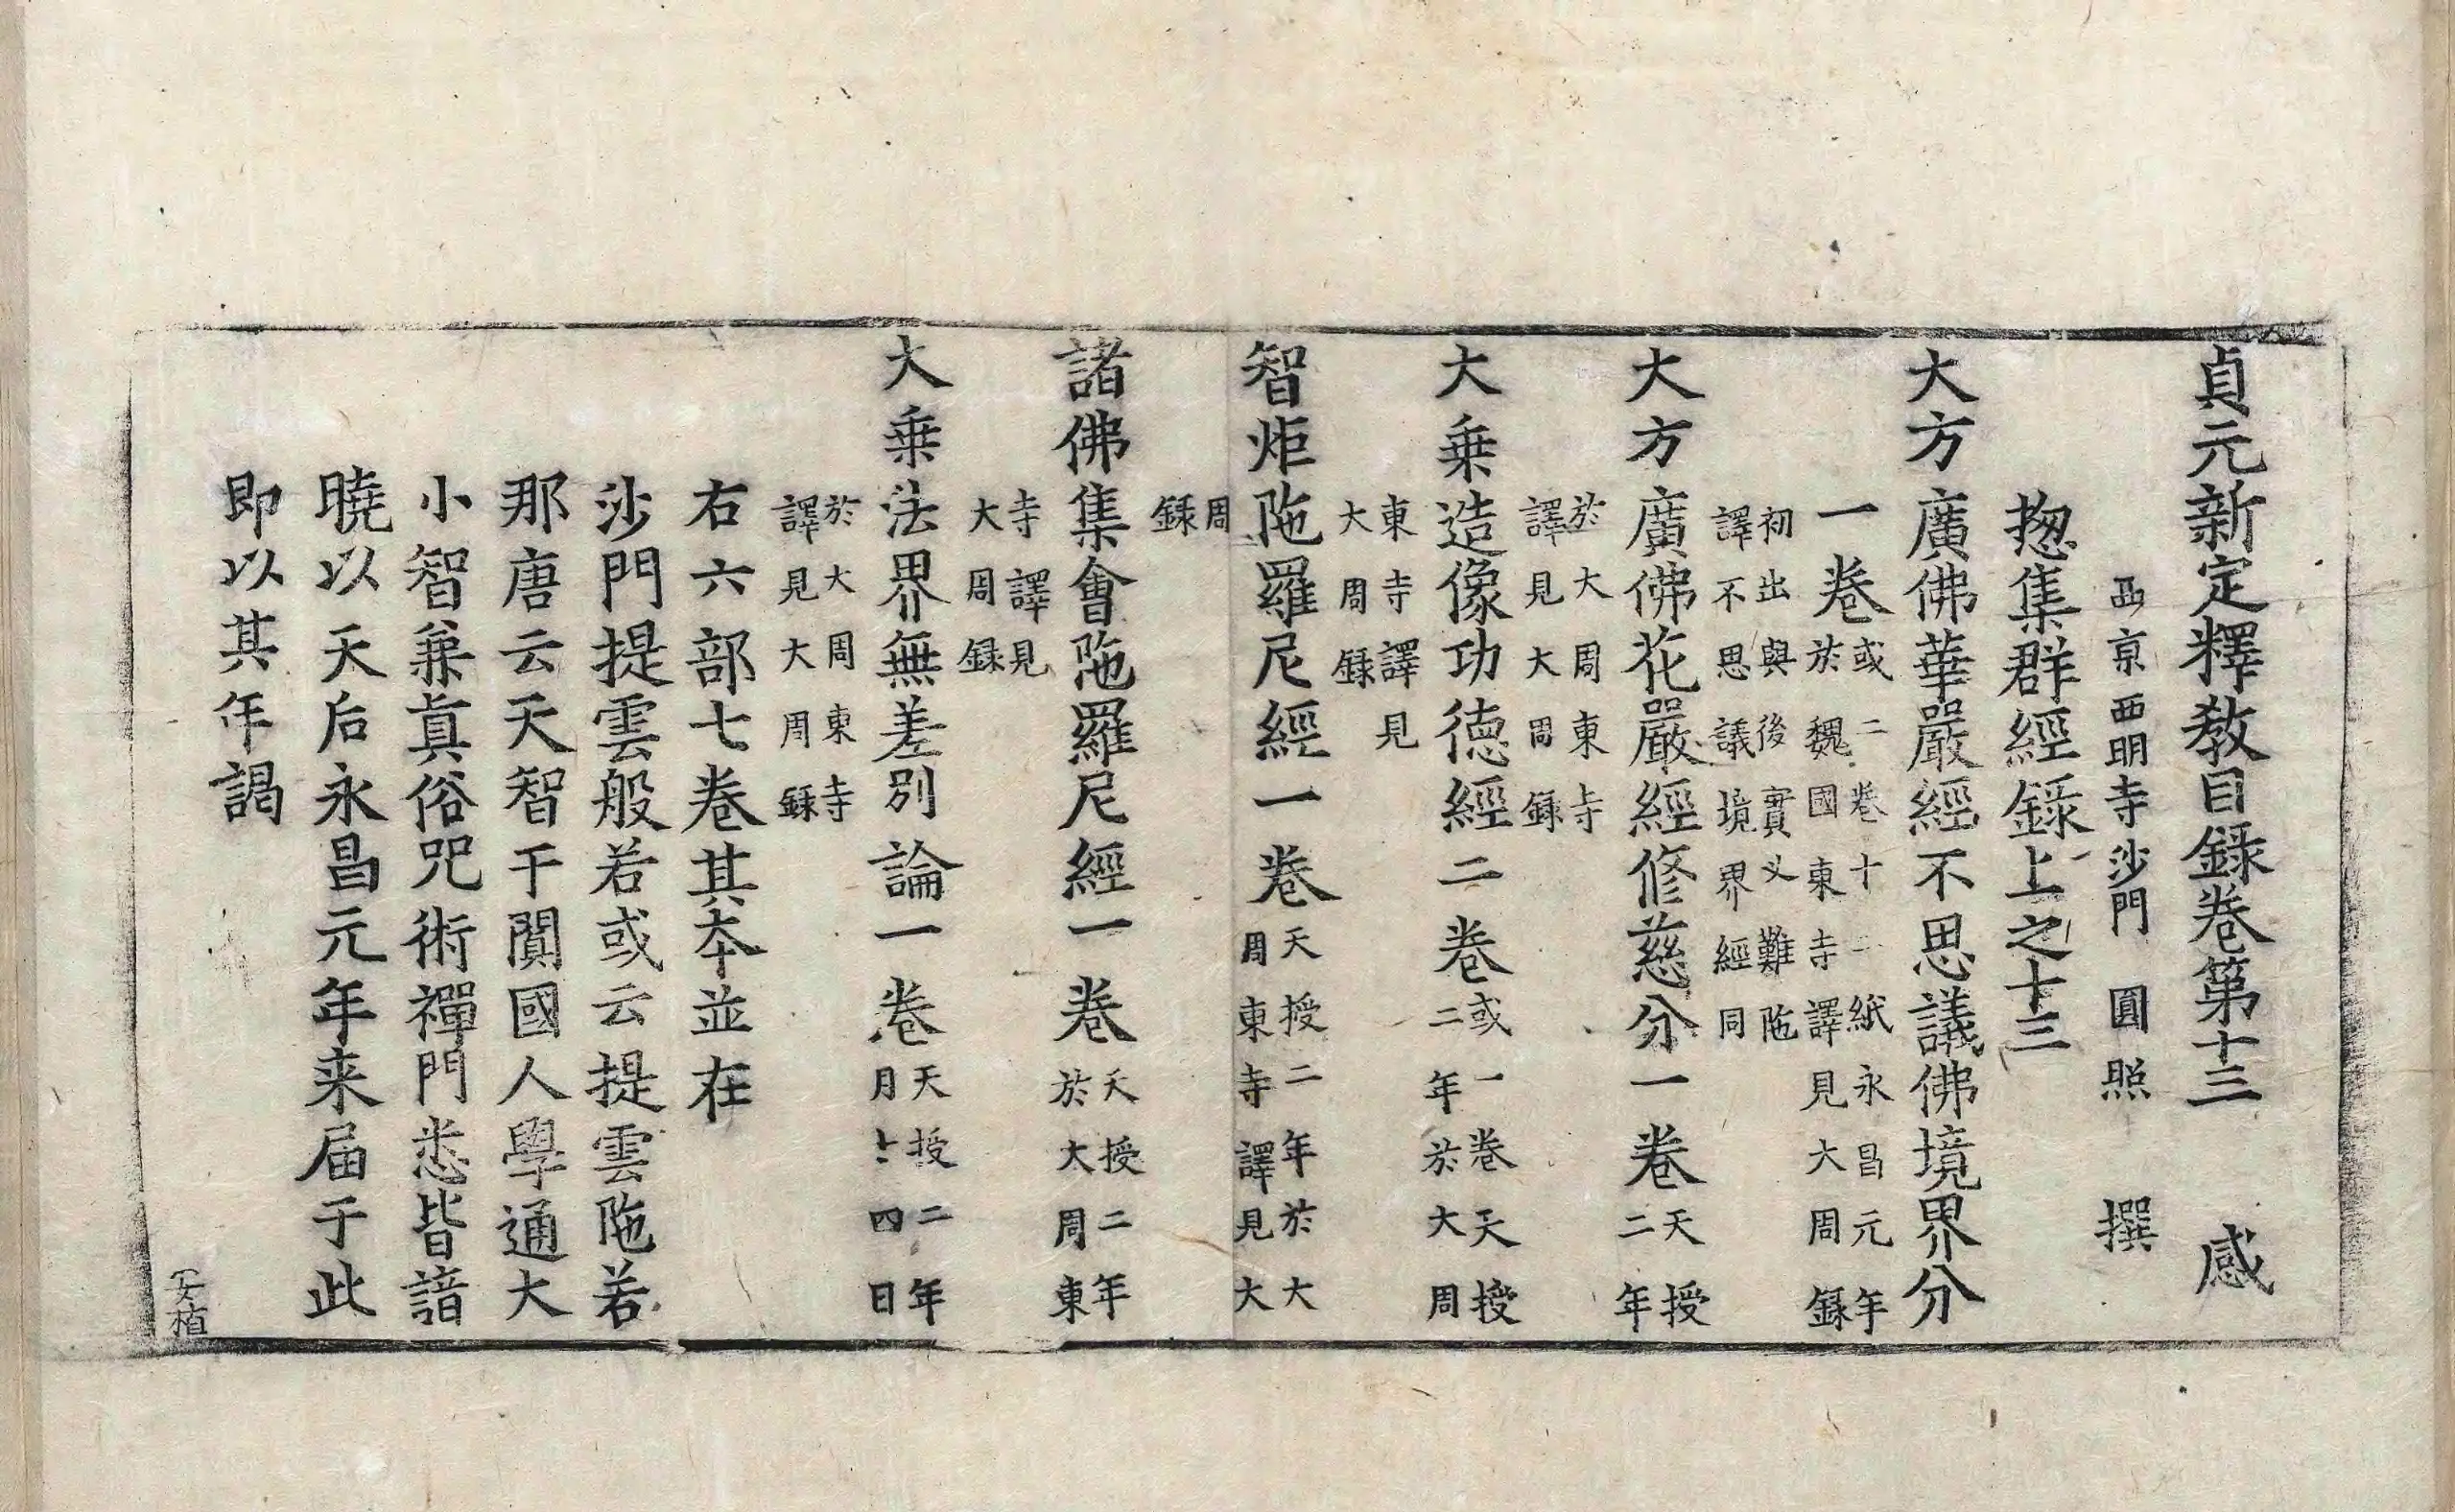 貞元新定釋教目録卷第十三 感
西京西明寺沙門 圓照 撰
揔集群經錄上之十三
大方廣佛華嚴經不思議佛境界分
一卷 或二卷十二紙永昌元年 於魏國東寺譯見大周録
初出與後實叉難陁 譯不思議境界經同
大方廣佛花嚴經修慈分一卷 天授 二年
於大周東寺 譯見大周録
大乗造像功德經二卷 或一卷天授 二年於大周
東寺譯見 大周録
智炬陁羅尼經一卷 天授二年於大 周東寺譯見大
周 録
諸佛集會陁羅尼經一卷 天授二年 於大周東
寺譯見 大周録
大乗法界無差別論一卷 天授二年 月四日
於大周東寺 譯見大周録
右六部七卷其夲並在
沙門提雲般若或云提雲陁若
那唐云天智于闐國人學通大
小智兼真俗咒術禪門悉皆諳
曉以天后永昌元年来届于此
即以其年謁
安植